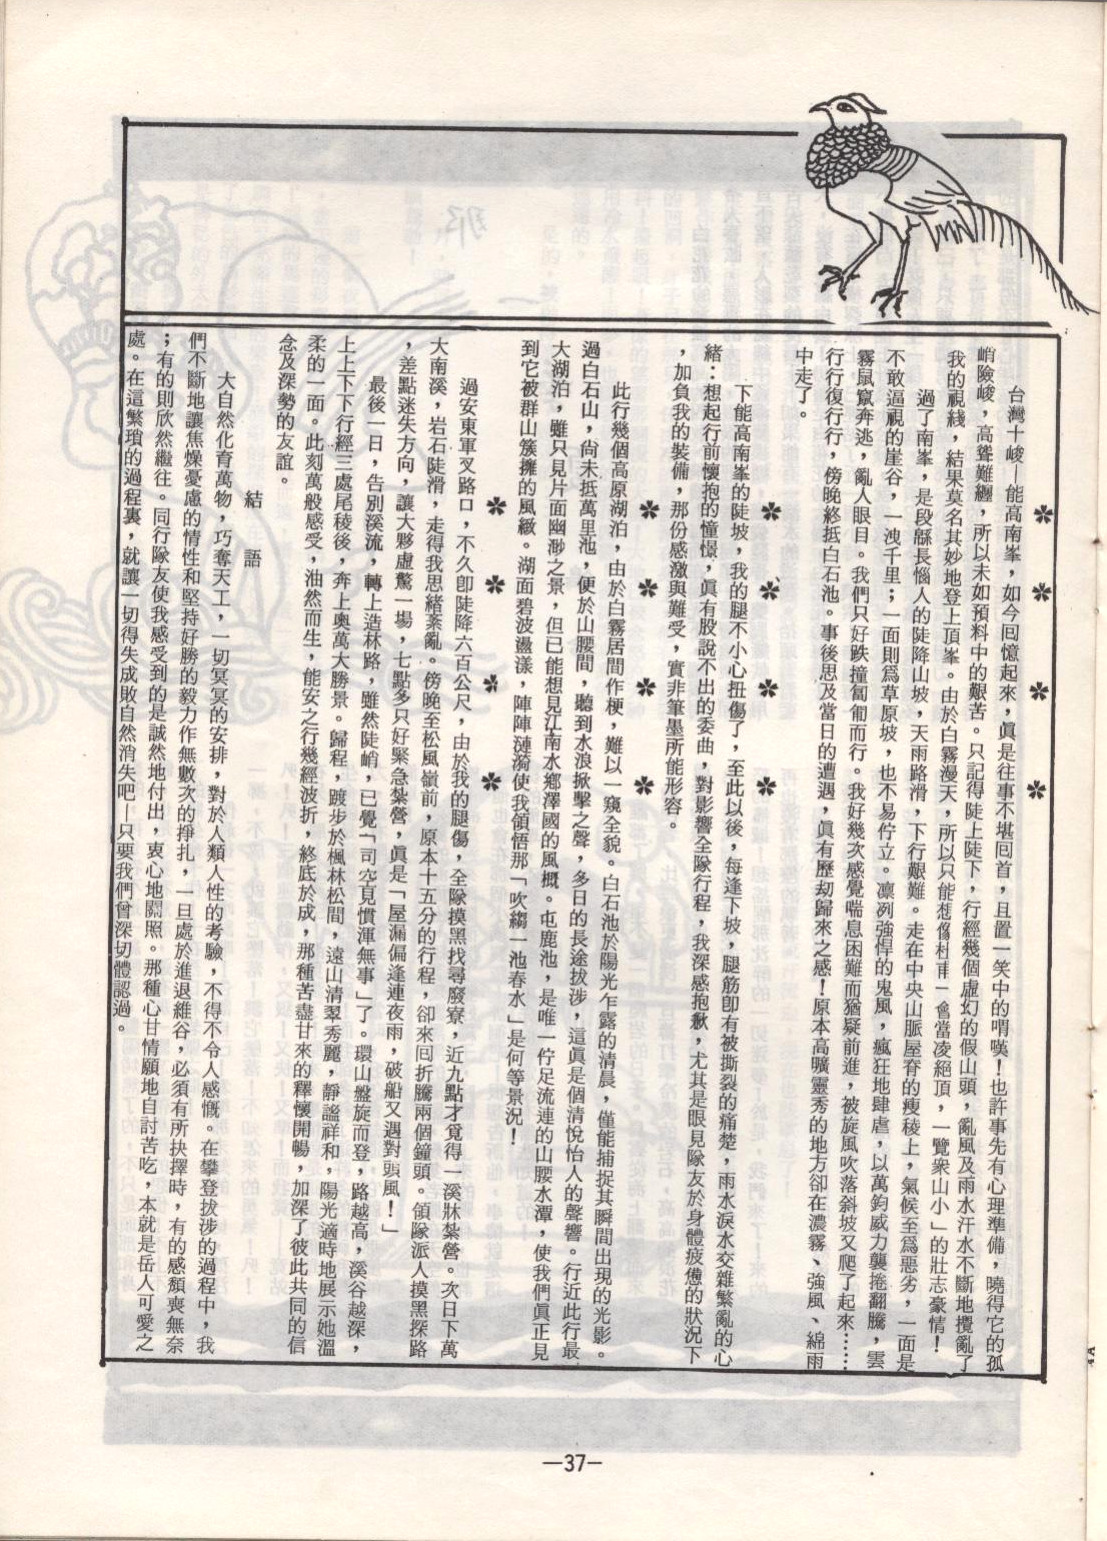 ✽ ✽ ✽ ✽
台灣十峻—能高南峯，如今回憶起來，眞是往事不堪回首，且置一笑中的喟嘆！也許事先有心理準備，曉得它的孤
峭險峻，高聳難纏，所以未如預料中的艱苦。只記得陡上陡下，行經幾個虛幻的假山頭，亂風及雨水汗水不斷地攪亂了
我的視綫，結果莫名其妙地登上頂峯。由於白霧漫天，所以只能想像杜甫「會當凌絕頂，一覽衆山小」的壯志豪情！
過了南峯，是段緜長惱人的陡降山坡，天雨路滑，下行艱難。走在中央山脈屋脊的瘦稜上，氣候至爲惡劣，一面是
不敢逼視的崖谷，一洩千里；一面則爲草原坡，也不易佇立。凜冽強悍的鬼風，瘋狂地肆虐，以萬鈞威力襲捲翻騰，雲
霧鼠竄奔逃，亂人眼目。我們只好跌撞匍匐而行。我好幾次感覺喘息困難而猶疑前進，被旋風吹落斜坡又爬了起來……
行行復行行，傍晚終抵白石池。事後思及當日的遭遇，眞有歷刧歸來之感！原本高曠靈秀的地方卻在濃霧、強風、綿雨
中走了。
✽ ✽ ✽ ✽
下能高南峯的陡坡，我的腿不小心扭傷了，至此以後，每逢下坡，腿筋卽有被撕裂的痛楚，雨水淚水交雜繁亂的心
緒：想起行前懷抱的憧憬，眞有股說不出的委曲，對影響全隊行程，我深感抱歉，尤其是眼見隊友於身體疲憊的狀況下
，加負我的裝備，那份感激與難受，實非筆墨所能形容。
✽ ✽ ✽ ✽
此行幾個高原湖泊，由於白霧居間作梗，難以一窺全貌。白石池於陽光乍露的清晨，僅能捕捉其瞬間出現的光影。
過白石山，尙未抵萬里池，便於山腰間，聽到水浪掀擊之聲，多日的長途拔涉，這眞是個清悅怡人的聲響。行近此行最
大湖泊，雖只見片面幽渺之景，但已能想見江南水鄉澤國的風概。屯鹿池，是唯一佇足流連的山腰水潭，使我們眞正見
到它被群山簇擁的風緻。湖面碧波盪漾，陣陣漣漪使我領悟那「吹縐一池春水」是何等景況！
✽ ✽ ✽ ✽
過安東軍叉路口，不久卽陡降六百公尺，由於我的腿傷，全隊摸黑找尋廢寮，近九點才覓得一溪狀紮營。次日下萬
大南溪，岩石陡滑，走得我思緒紊亂。傍晚至松風嶺前，原本十五分的行程，卻來回折騰兩個鐘頭。領隊派人摸黑探路
，差點迷失方向，讓大夥虛驚一場，七點多只好緊急紮營，眞是「屋漏偏逢連夜雨，破船又遇對頭風！」
最後一日，告別溪流，轉上造林路，雖然陡峭，已覺「司空見慣渾無事」了。環山盤旋而登，路越高，溪谷越深，
上上下下行經三處尾稜後，奔上奧萬大勝景。歸程，踱步於楓林松間，遠山清翠秀麗，靜謐祥和，陽光適時地展示她溫
柔的一面。此刻萬般感受，油然而生，能安之行幾經波折，終底於成，那種苦盡甘來的釋懷開暢，加深了彼此共同的信
念及深勢的友誼。
結語
大自然化育萬物，巧奪天工，一切冥冥的安排，對於人類人性的考驗，不得不令人感慨。在攀登拔涉的過程中，我
們不斷地讓焦燥憂慮的情性和堅持好勝的毅力作無數次的掙扎，一旦處於進退維谷，必須有所抉擇時，有的感頹喪無奈
；有的則欣然繼往。同行隊友使我感受到的是誠然地付出，衷心地關照。那種心甘情願地自討苦吃，本就是岳人可愛之
處。在這繁瑣的過程裏，就讓一切得失成敗自然消失吧—只要我們曾深切體認過。
—37—